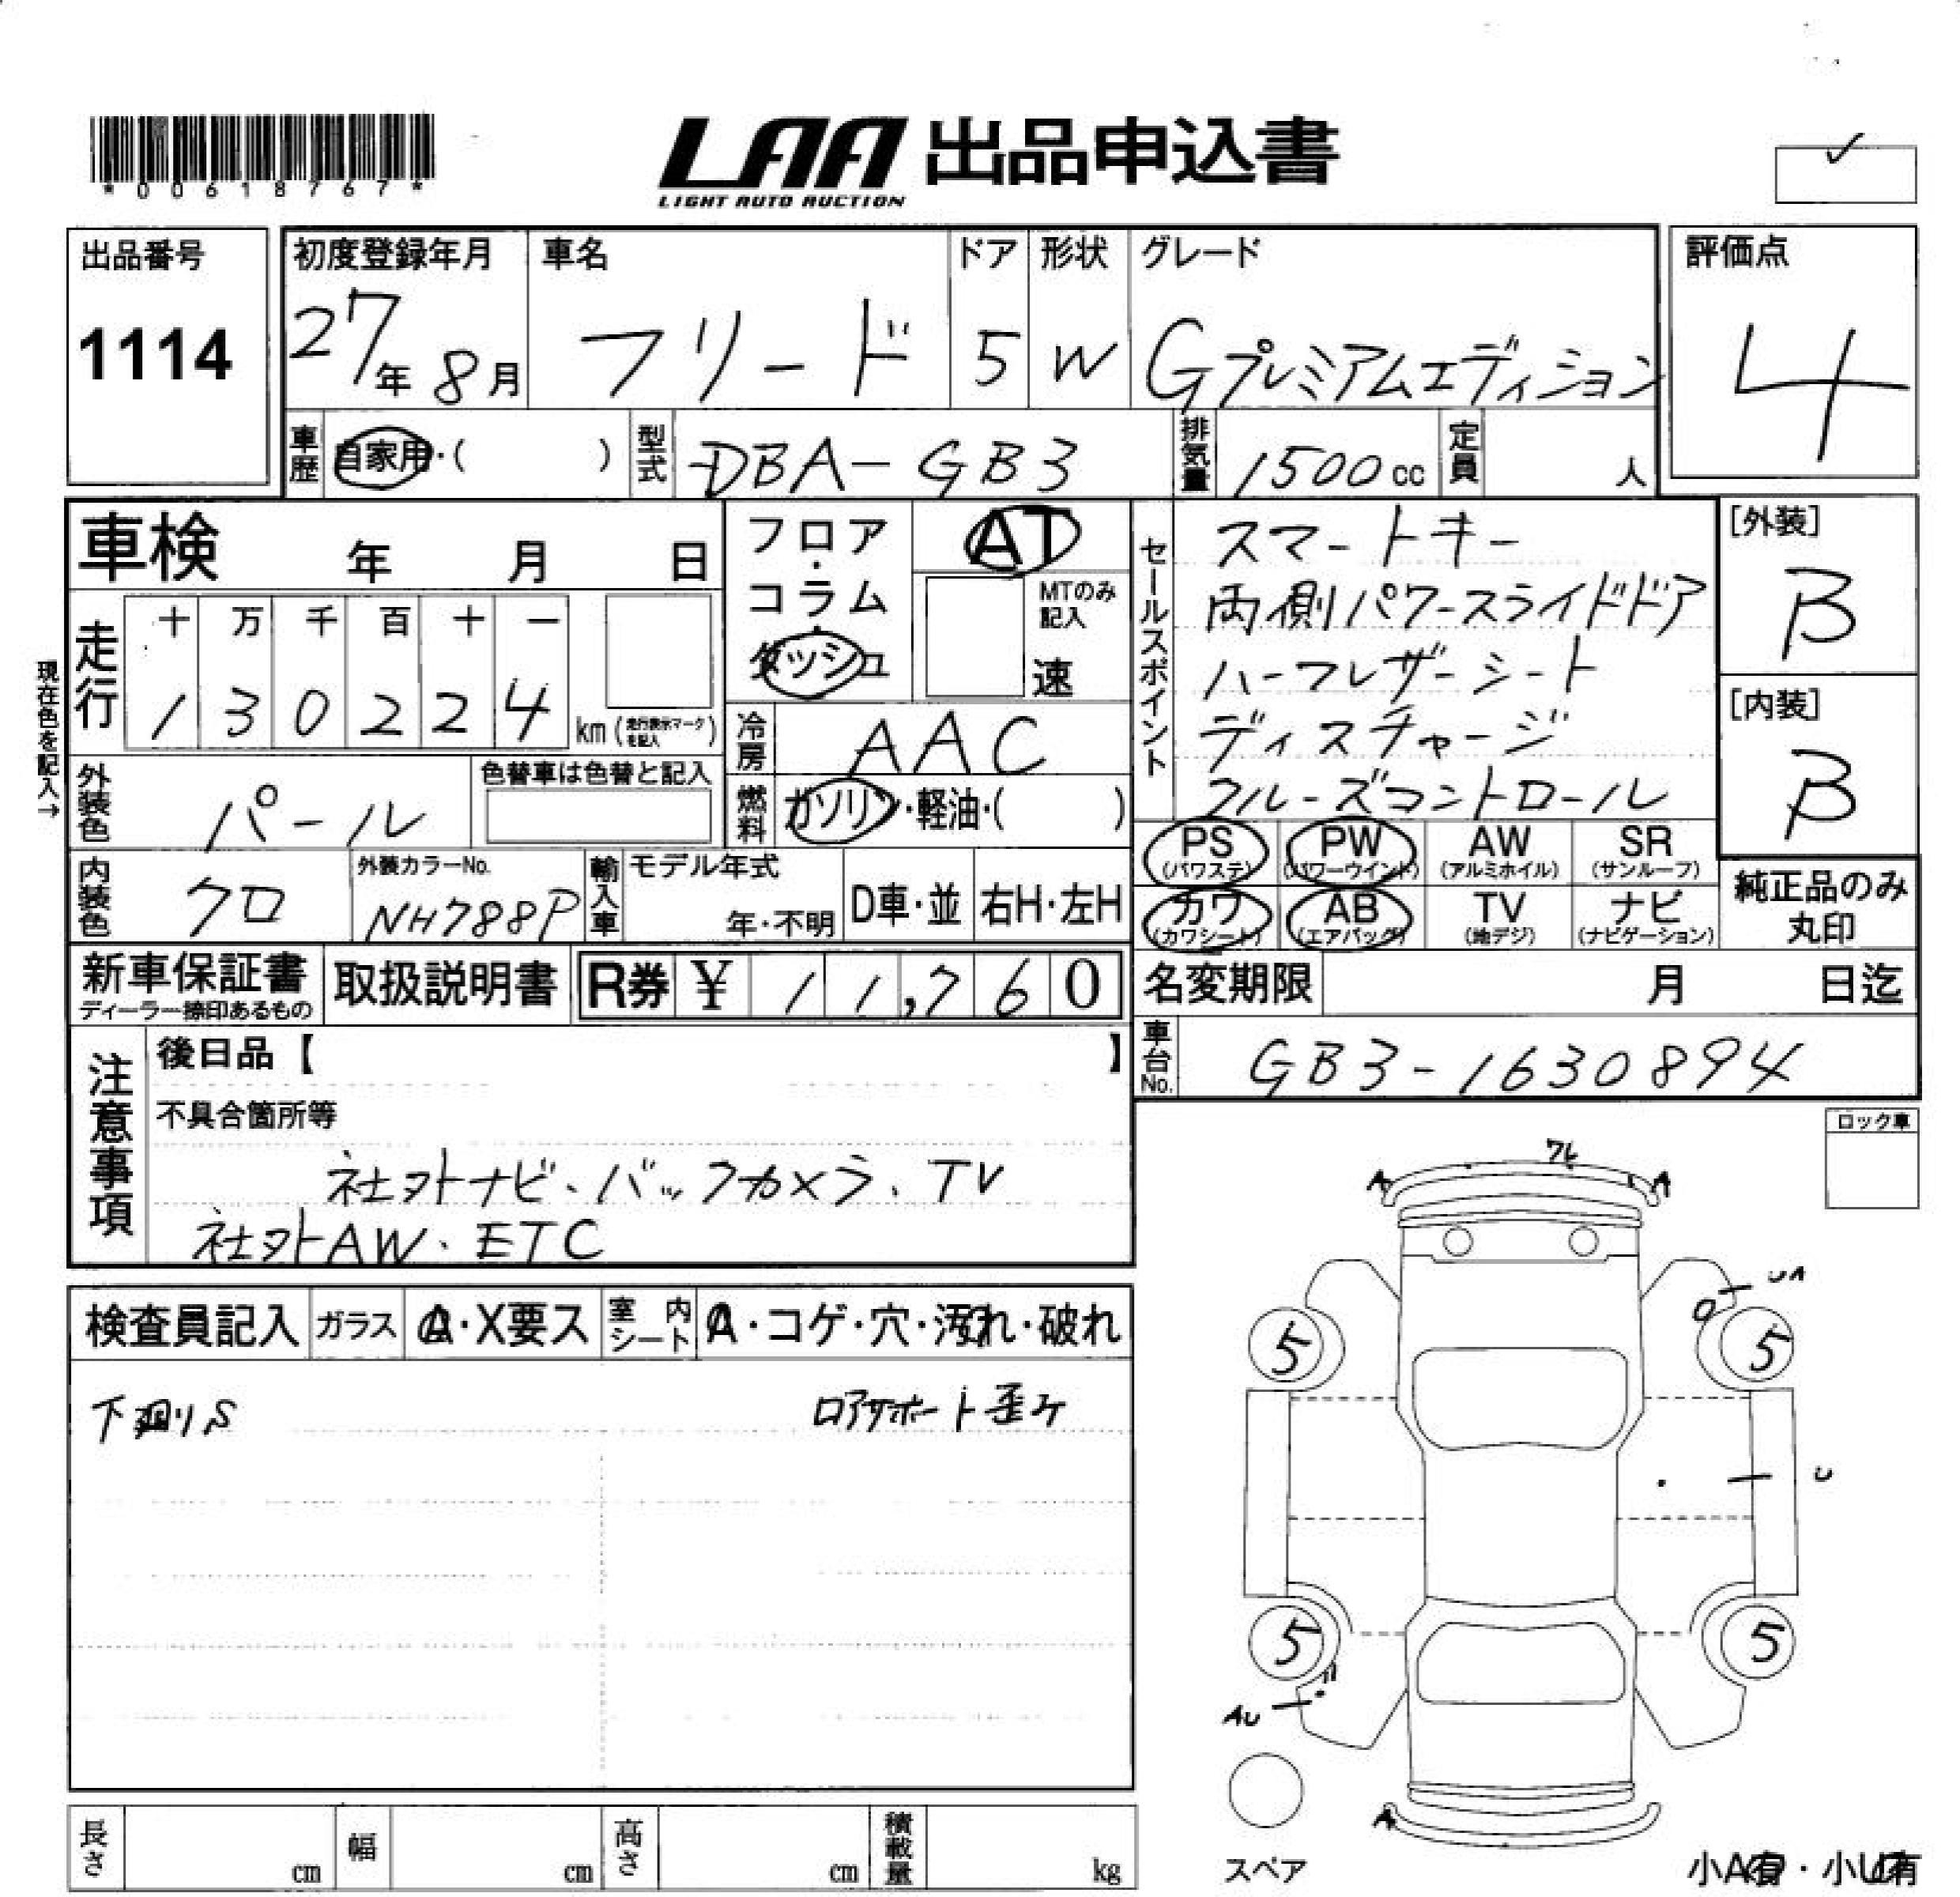 *00618767*
LAA 出品申込書
LIGHT AUTO AUCTION
出品番号
1114
初度登録年月
27年 8月
車名
フリード
ドア
5
形状
W
グレード
Gプレミアムエディション
評価点
4
車歴
自家用・( )
型式
DBA-GB3
排気量
1500cc
定員
人
車検 年 月 日
フロア・
コラム・
ダッシュ
AT
MTのみ
記入
速
セールスポイント
スマートキー
両側パワースライドドア
ハーフレザーシート
ディスチャージ
クルーズコントロール
[外装]
B
[内装]
B
現在色を記入→
走行
十 万 千 百 十 一
1 3 0 2 2 4
km(走行表示マークを記入)
冷房
AAC
外装色
パール
色替車は色替と記入
燃料
ガソリン・軽油・( )
内装色
クロ
外装カラーNo.
NH788P
輸入車
モデル年式
年・不明
D車・並
右H・左H
PS
(パワステ)
PW
(パワーウインド)
AW
(アルミホイル)
SR
(サンルーフ)
カワ
(カワシート)
AB
(エアバッグ)
TV
(地デジ)
ナビ
(ナビゲーション)
純正品のみ
丸印
新車保証書
ディーラー捺印あるもの
取扱説明書
R券 ¥ 11,760
名変期限 月 日迄
車台No.
GB3-1630894
注意事項
後日品【 】
不具合箇所等
社外ナビ、バックカメラ、TV
社外AW、ETC
ロック車
検査員記入
ガラス
A・X要ス
室内
シート
A・コゲ・穴・汚れ・破れ
下廻りS
ロアサポート歪ケ
A
フレ
A
UA
5
5
U
5
5
AU
A
スペア
小A有・小U有
長さ
cm
幅
cm
高さ
cm
積載量
kg